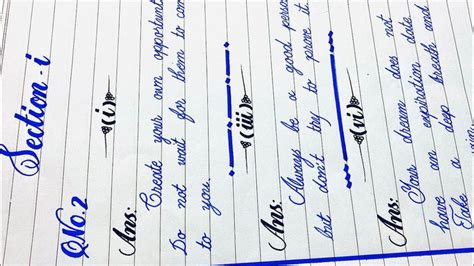 Section-i
QNo.2
(i)
Ans:
Create your own opportunit
Do not wait for them to com
to you.
(iii)
Ans:
Always be a good person
but don't try to prove it
(vi)
Ans:
Your dream does not
have an expiration date.
Take a deep breath and